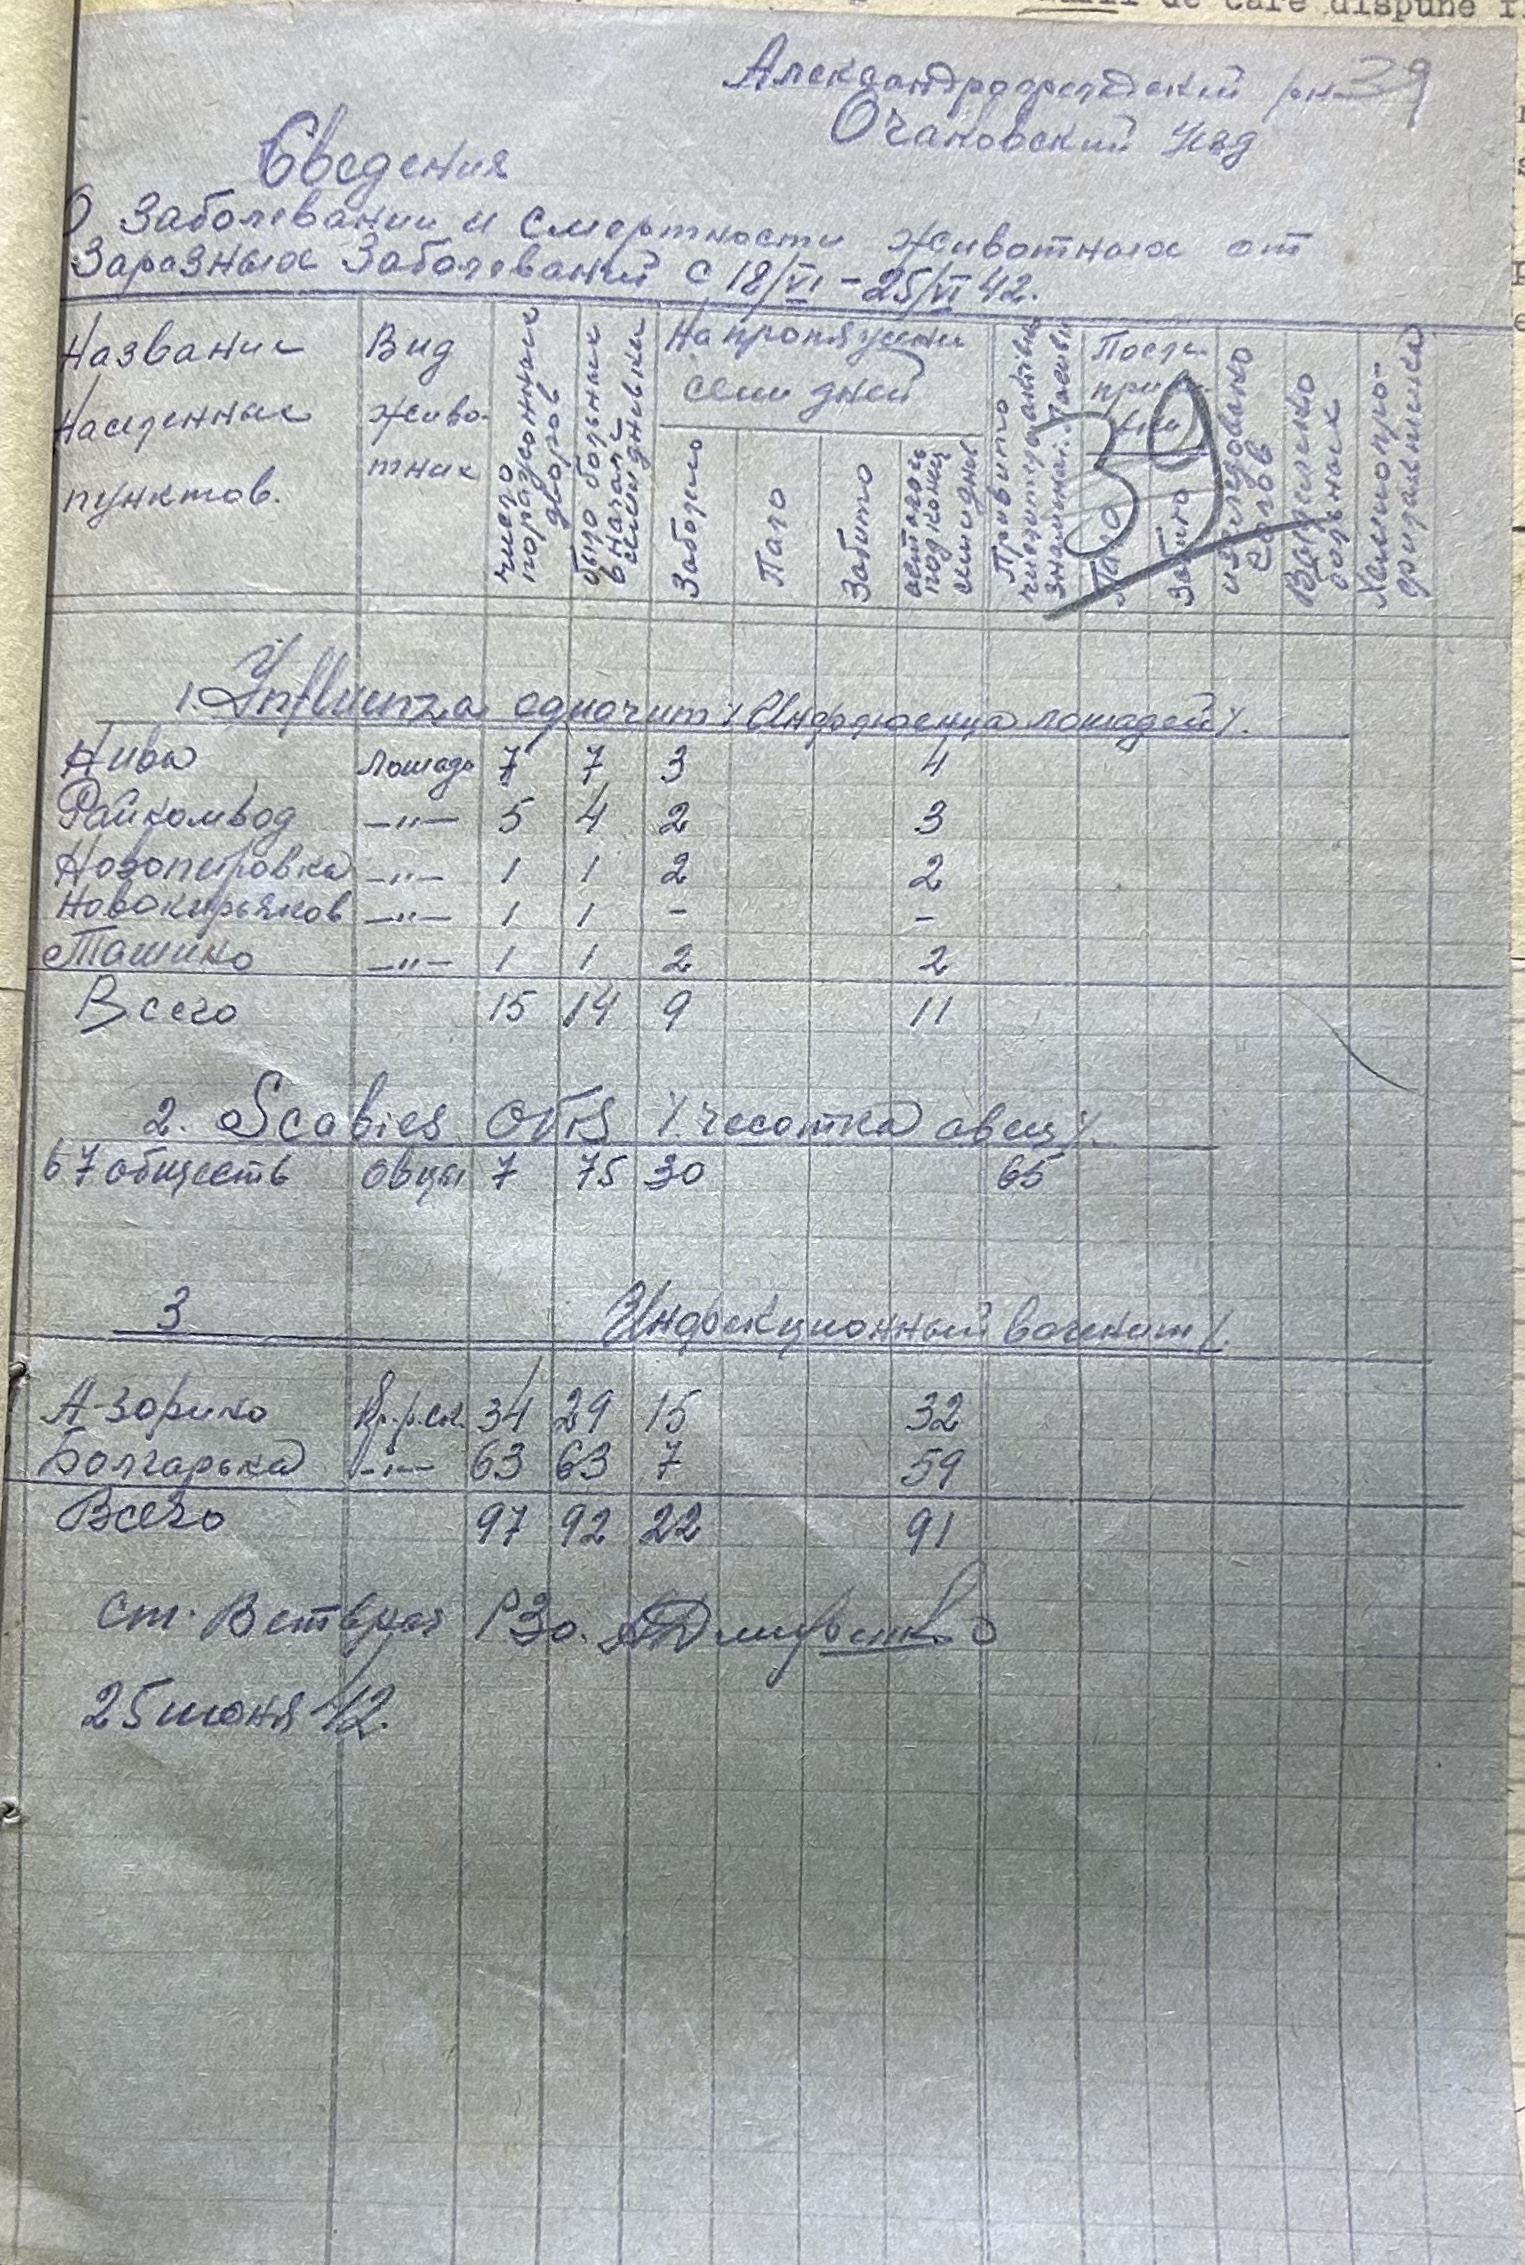 de care dispune
Александрфельдский р-н 39
Очаковский Уезд
Сведения
О Заболевании и смертности животных от
Заразных Заболеваний с 18/VI-25/VI 42.
Название населенных пунктов.
Вид животних
число пораженных дворов
было больных в начале семидневки
На протяжении семи дней
Заболело
Пало
Забито
осталось под конец семидневки
Привито
После прививки
Пало
Забито
исследовано голов
Выделено больных
39
1. Influenza одначит /. Инфлюенца лошадей /.
Нивы лошадь 7 7 3 4
Райкомвод —"— 5 4 2 3
Новопетровка —"— 1 1 2 2
Новокирьяков —"— 1 1 - -
Ташино —"— 1 1 2 2
Всего 15 14 9 11
2. Scabies Ovis /. чесотка овец /.
в 7 обществ Овцы 7 75 30 65
3 Инфекционный вагенит /.
А-зорино Кр.р.ск. 34 29 15 32
Болгарька —"— 63 63 7 59
Всего 97 92 22 91
Ст. Ветврач РЗо.
25 июня 42.